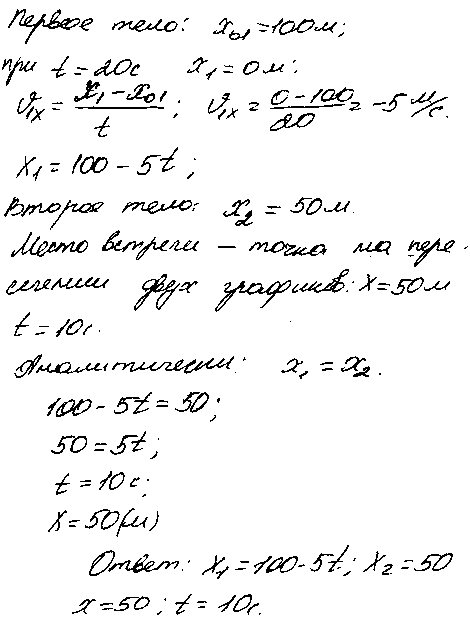 Первое тело: x₀₁ = 100м;
при t = 20с x₁ = 0м:
υ₁ₓ = (x₁ - x₀₁)/t; υ₁ₓ = (0 - 100)/20 = -5 м/с.
x₁ = 100 - 5t;
Второе тело: x₂ = 50м.
Место встречи – точка на пере-
сечении двух графиков: x = 50м
t = 10с.
Аналитически: x₁ = x₂.
100 - 5t = 50;
50 = 5t;
t = 10с;
x = 50(м)
Ответ: x₁ = 100 - 5t; x₂ = 50
x = 50; t = 10с.